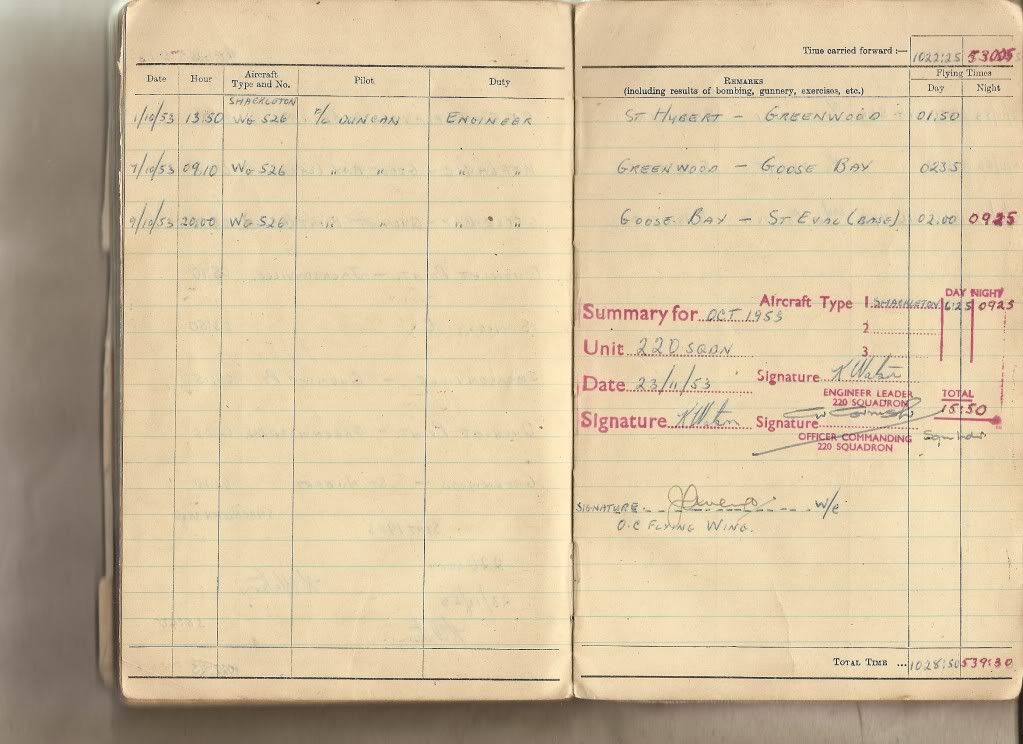 Date Hour Aircraft Type and No. Pilot Duty
SHACKLETON
1/10/53 13.50 WG 526 F/L DUNCAN ENGINEER
7/10/53 09.10 WG 526 " " " "
9/10/53 20.00 WG 526 " " " "
Time carried forward :— 1022:25 53005
REMARKS
(including results of bombing, gunnery, exercises, etc.)
Flying Times
Day Night
ST HUBERT – GREENWOOD 01.50
GREENWOOD – GOOSE BAY 0235
GOOSE BAY – ST EVAL (BASE) 02.00 0925
DAY NIGHT
Summary for OCT 1953 Aircraft Type 1 SHACKLETON 6:25 0925
2
Unit 220 SQDN 3
Date 23/11/53 Signature K Watson
ENGINEER LEADER
220 SQUADRON
TOTAL
15:50
Signature K Watson Signature
OFFICER COMMANDING
220 SQUADRON
SIGNATURE W/C
O.C FLYING WING.
TOTAL TIME ... 1028:50 539:30